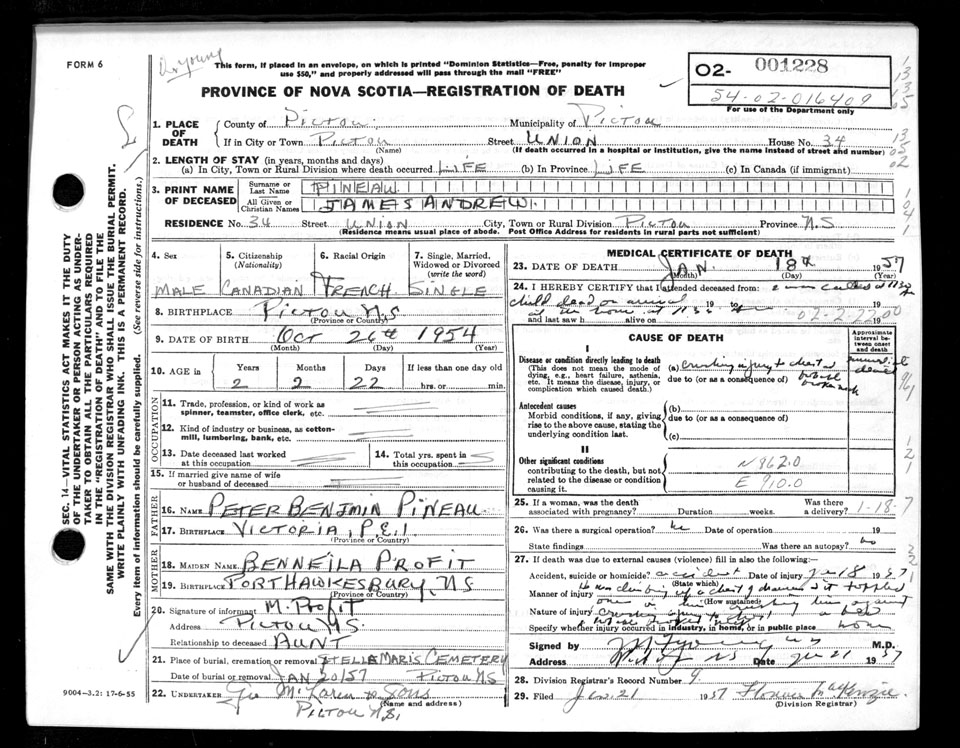 FORM 6
Dr. Young
This form, if placed in an envelope, on which is printed "Dominion Statistics—Free, penalty for improper
use $50," and properly addressed will pass through the mail "FREE"
PROVINCE OF NOVA SCOTIA—REGISTRATION OF DEATH
02- 001228
54-02-016409
For use of the Department only
1. PLACE OF DEATH
County of Pictou Municipality of Pictou
If in City or Town Pictou Street UNION House No. 34
(Name) (If death occurred in a hospital or institution, give the name instead of street and number)
2. LENGTH OF STAY (in years, months and days)
(a) In City, Town or Rural Division where death occurred LIFE (b) In Province LIFE (c) In Canada (if immigrant)
3. PRINT NAME OF DECEASED
Surname or Last Name PINEAU
All Given or Christian Names JAMES ANDREW
RESIDENCE No. 34 Street UNION City, Town or Rural Division PICTOU Province N.S
(Residence means usual place of abode. Post Office Address for residents in rural parts not sufficient)
SEC. 14—VITAL STATISTICS ACT MAKES IT THE DUTY
OF THE UNDERTAKER OR PERSON ACTING AS UNDER-
TAKER TO OBTAIN ALL THE PARTICULARS REQUIRED
IN THE "REGISTRATION OF DEATH" AND TO FILE THE
SAME WITH THE DIVISION REGISTRAR WHO SHALL ISSUE THE BURIAL PERMIT.
WRITE PLAINLY WITH UNFADING INK. THIS IS A PERMANENT RECORD.
Every item of information should be carefully supplied. (See reverse side for instructions.)
4. Sex MALE
5. Citizenship (Nationality) CANADIAN
6. Racial Origin FRENCH
7. Single, Married, Widowed or Divorced (write the word) SINGLE
8. BIRTHPLACE Pictou NS
(Province or Country)
9. DATE OF BIRTH Oct 26th 1954
(Month) (Day) (Year)
10. AGE in Years 2 Months 2 Days 22 If less than one day old hrs. or min.
OCCUPATION
11. Trade, profession, or kind of work as
spinner, teamster, office clerk, etc.
12. Kind of industry or business, as cotton-
mill, lumbering, bank, etc.
13. Date deceased last worked
at this occupation
14. Total yrs. spent in
this occupation
15. If married give name of wife
or husband of deceased
FATHER
16. NAME PETER BENJMIN PINEAU
17. BIRTHPLACE VICTORIA, P.E.I.
(Province or Country)
MOTHER
18. MAIDEN NAME BENNEILA PROFIT
19. BIRTHPLACE PORT HAWKESBURY, NS
(Province or Country)
20. Signature of informant M. Profit
Address Pictou NS.
Relationship to deceased AUNT
21. Place of burial, cremation or removal STELLA MARIS CEMETERY
Date of burial or removal JAN 20/57 PICTOU NS
22. UNDERTAKER Geo McLaren & Sons
(Name and address)
PICTOU N.S.
9004—3.2: 17-6-55
MEDICAL CERTIFICATE OF DEATH
23. DATE OF DEATH JAN. 18th 1957
(Month) (Day) (Year)
24. I HEREBY CERTIFY that I attended deceased from:
child dead on arrival 19 to 19
and last saw h alive on 19
02-2-2200
CAUSE OF DEATH
Approximate interval between onset and death
I
Disease or condition directly leading to death
(This does not mean the mode of
dying, e.g., heart failure, asthenia,
etc. It means the disease, injury, or
complication which caused death.)
(a) crushing injury to chest
due to (or as a consequence of)
Antecedent causes
Morbid conditions, if any, giving
rise to the above cause, stating the
underlying condition last.
(b)
due to (or as a consequence of)
(c)
II
Other significant conditions
contributing to the death, but not
related to the disease or condition
causing it.
N 862.0
E 910.0
25. If a woman, was the death
associated with pregnancy? Duration weeks. Was there a delivery? 1-18-7
26. Was there a surgical operation? no Date of operation 19
State findings Was there an autopsy? no
27. If death was due to external causes (violence) fill in also the following:
Accident, suicide or homicide? accident Date of injury Jan 18 1957
(State which)
Manner of injury He was climbing up a chest drawers & it toppled
(How sustained)
Nature of injury crushing injury to chest
Specify whether injury occurred in industry, in home, or in public place home
Signed by M.D.
Address Date Jan 21 1957
28. Division Registrar's Record Number 9
29. Filed Jan. 21 1957 Florence MacKenzie
(Division Registrar)